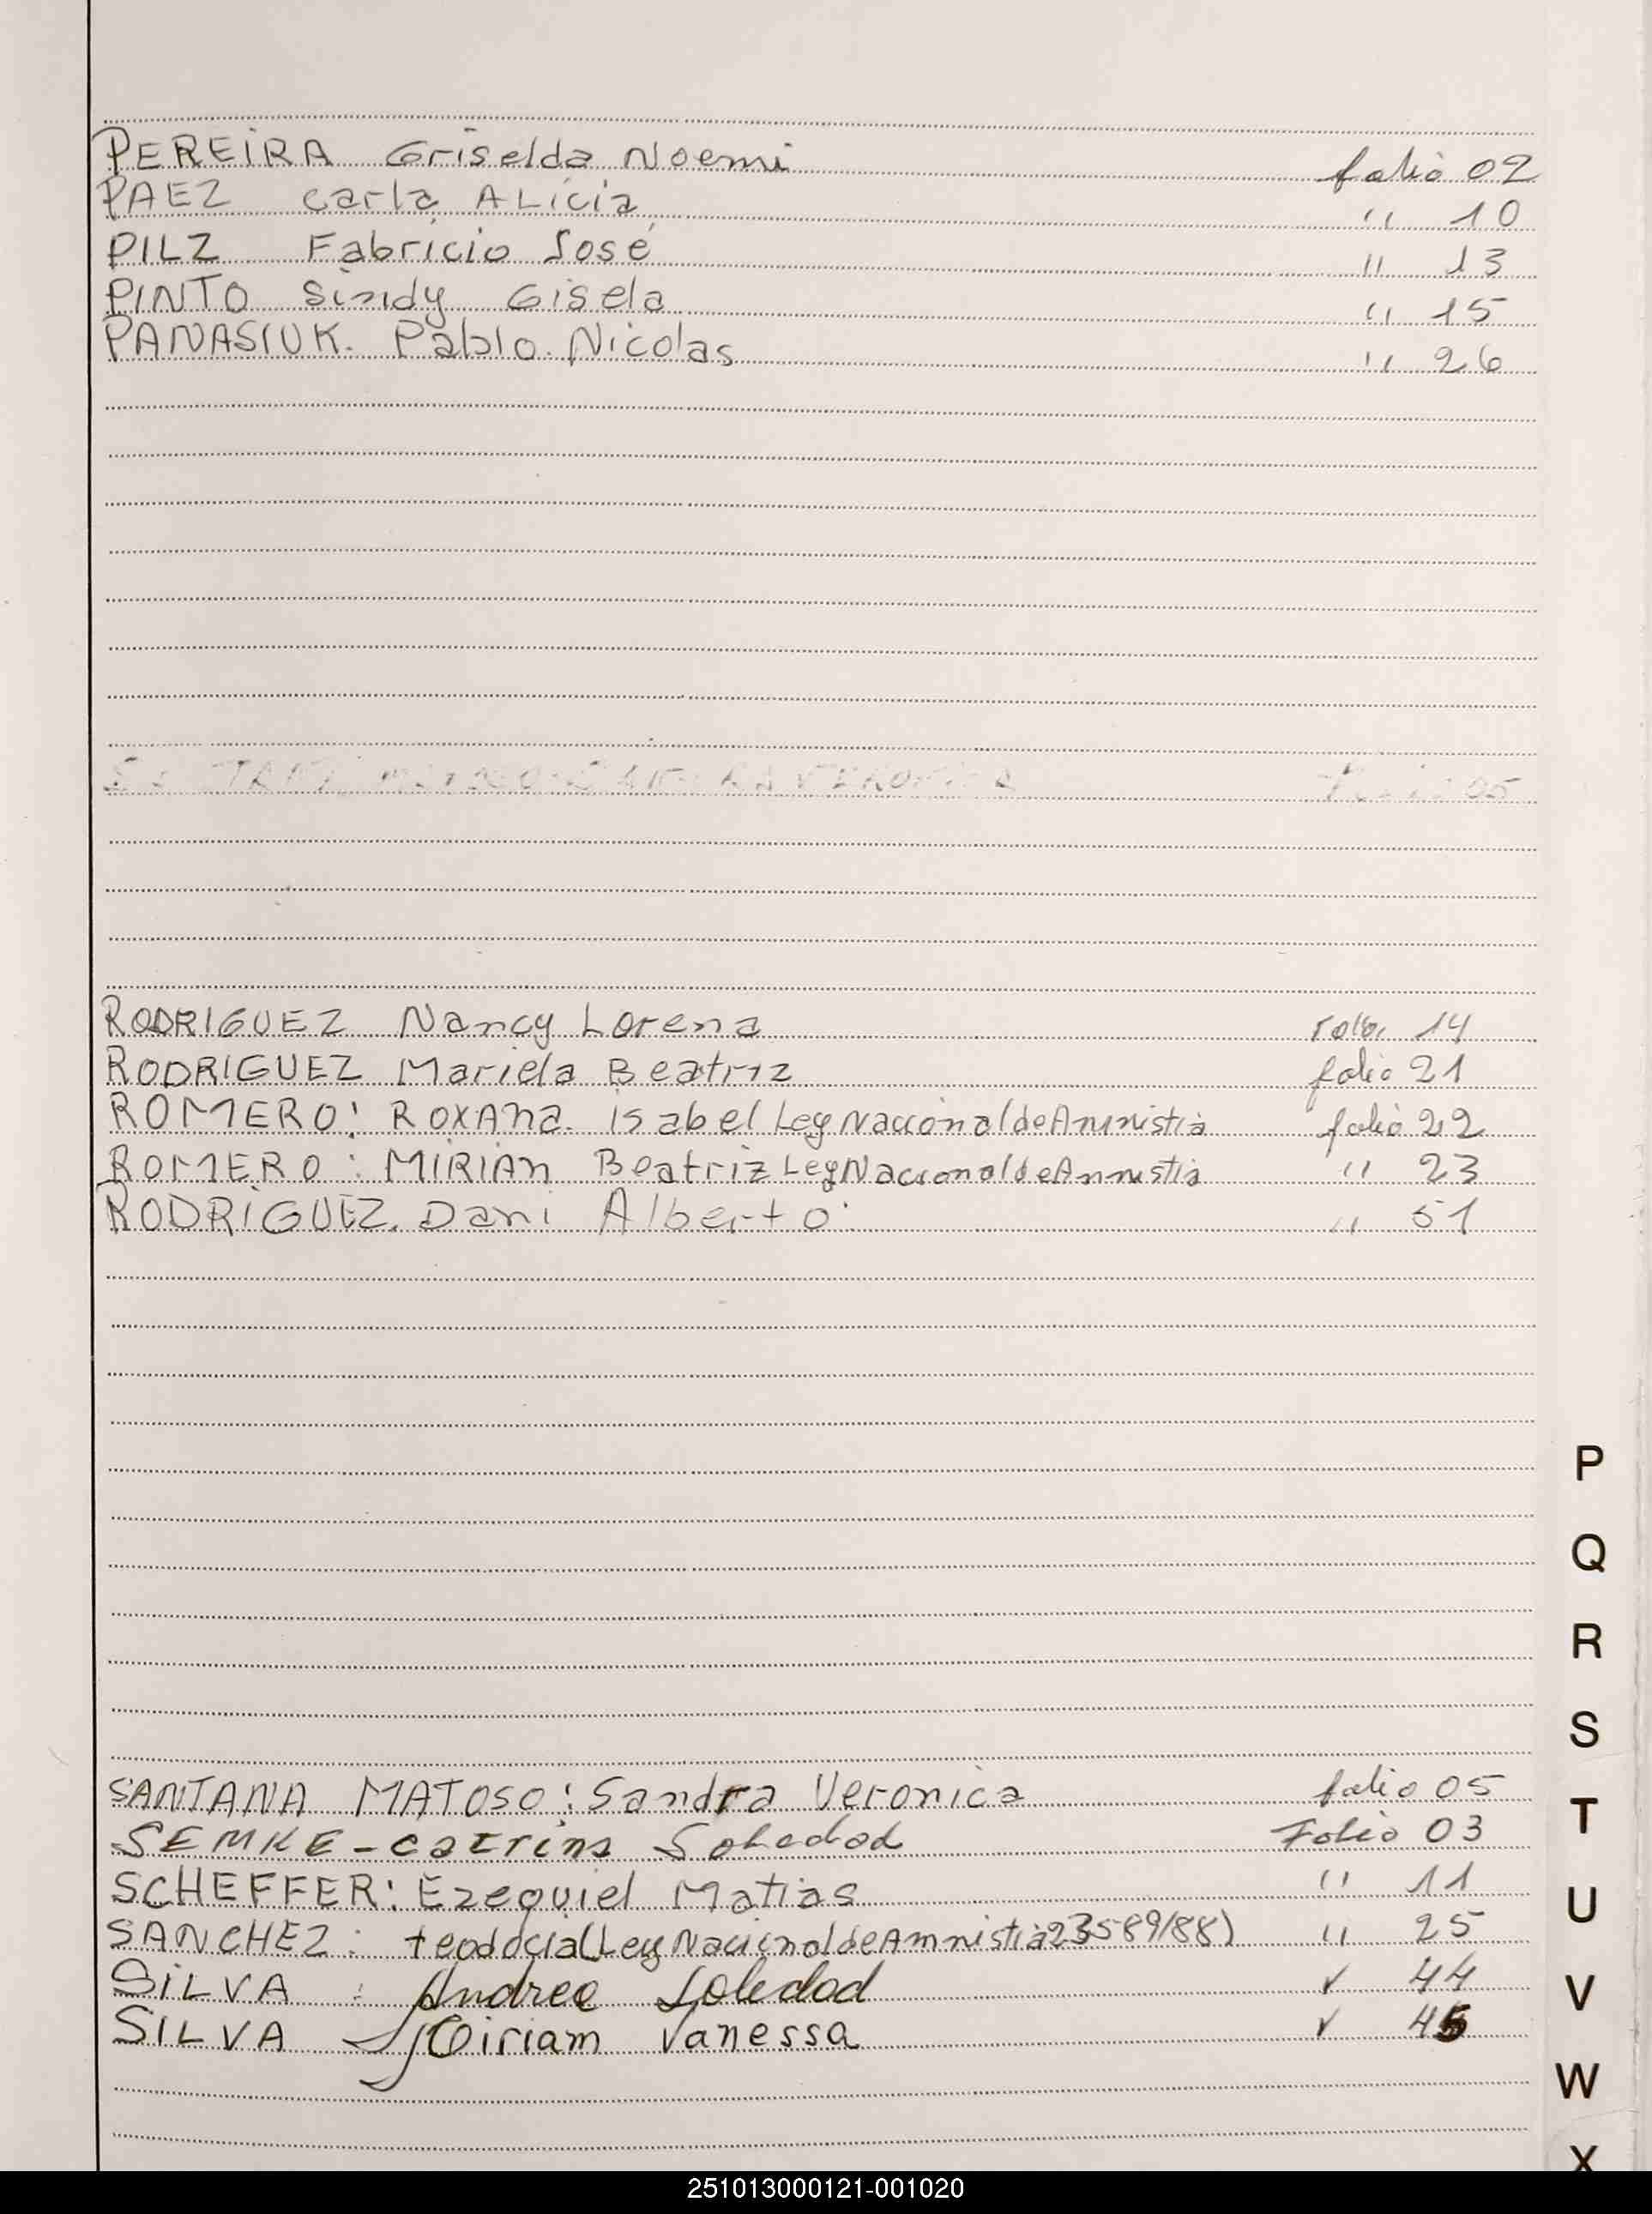 PEREIRA Griselda Noemi folio 02
PAEZ Carla ALicia " 10
PILZ Fabricio José " 13
PINTO Sindy Gisela " 15
PANASIUK. Pablo. Nicolas " 26
05
RODRIGUEZ Nancy Lorena folio 14
RODRIGUEZ Mariela Beatriz folio 21
ROMERO: ROXAna. isabel Ley Nacional de Amnistia folio 22
ROMERO: MIRIAn Beatriz Ley Nacional de Amnistia " 23
RODRIGUEZ. Dani Alberto. " 51
P
Q
R
S
SANTANA MATOSO: Sandra Veronica folio 05
T
SEMKE - catrins Soledad Folio 03
SCHEFFER: Ezequiel Matias " 11
U
SANCHEZ: teodocia (Ley Nacional de Amnistia 23589/88) " 25
SILVA : Andrea Soledad ✓ 44
V
SILVA Miriam Vanessa ✓ 45
W
X
251013000121-001020